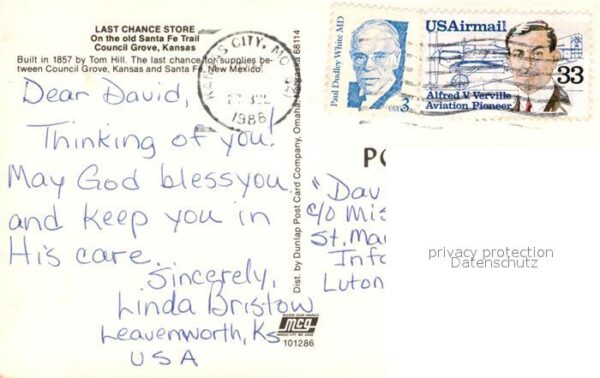 LAST CHANCE STORE
On the old Santa Fe Trail
Council Grove, Kansas
Built in 1857 by Tom Hill. The last chance for supplies be-
tween Council Grove, Kansas and Santa Fe, New Mexico.
Dear David,
Thinking of you!
May God bless you
and keep you in
His care..
Sincerely,
Linda Bristow
Leavenworth, Ks
USA
KANSAS CITY, MO
1988
Dist. by Dunlap Post Card Company, Omaha, Nebraska 68114
mcg
101286
Paul Dudley White MD
USA 3
USAirmail
33
Alfred V. Verville
Aviation Pioneer
PO
"Dav
c/o Mis
St. Mar
Info
Luton
privacy protection
Datenschutz